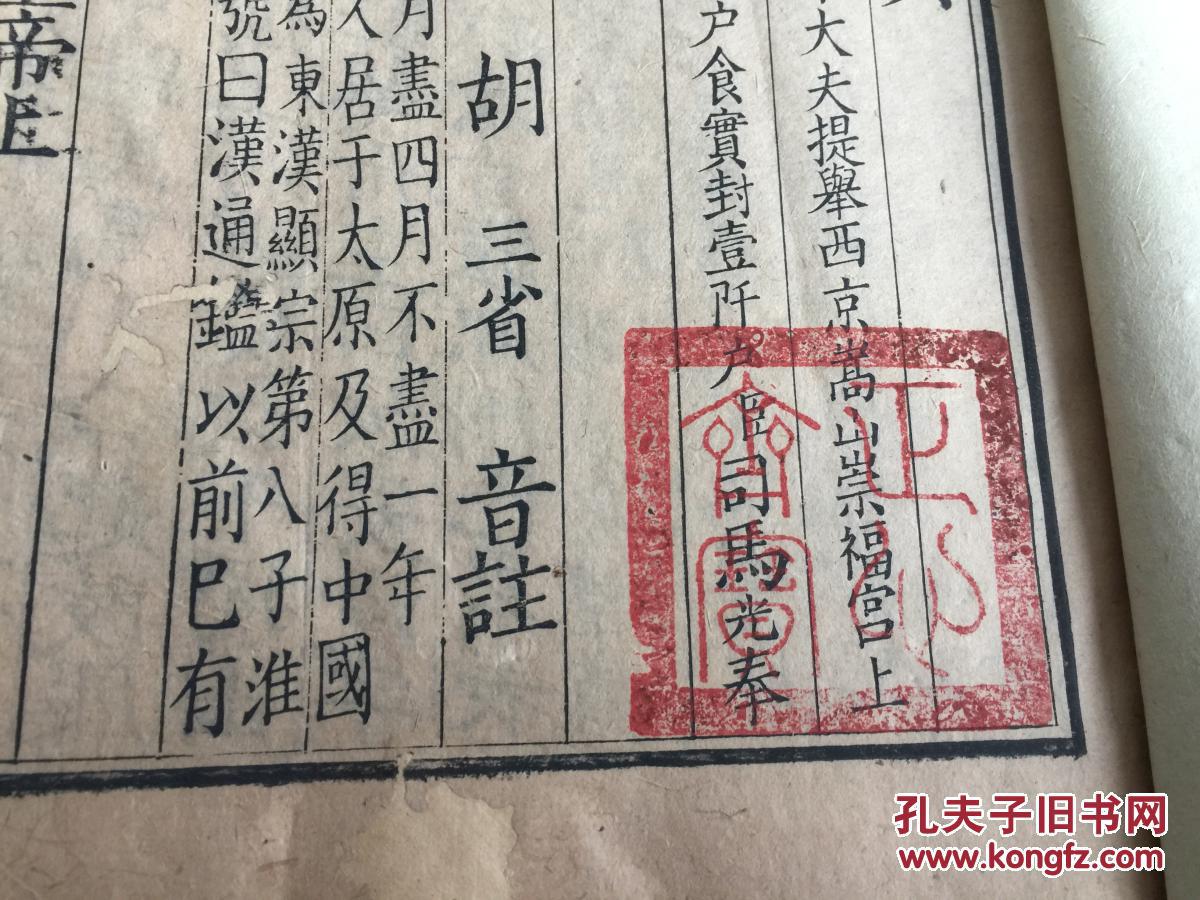 大夫提舉西京嵩山崇福宮上
户食實封壹阡户臣司馬光奉
胡三省音註
月盡四月不盡一年
人居于太原及得中國
為東漢顯宗第八子淮
號曰漢通鑑以前巳有
帝上
孔夫子旧书网
www.kongfz.com